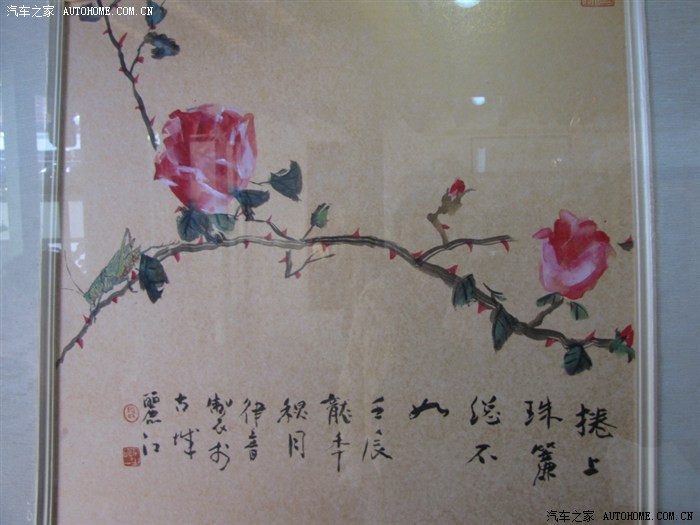 汽车之家 AUTOHOME.COM.CN
捲上
珠簾
總不
如
壬辰
龍年
秋月
律音
製於
古城
麗江
汽车之家 AUTOHOME.COM.CN